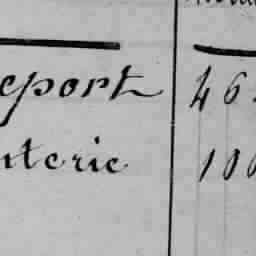 eport 46
nterie 100